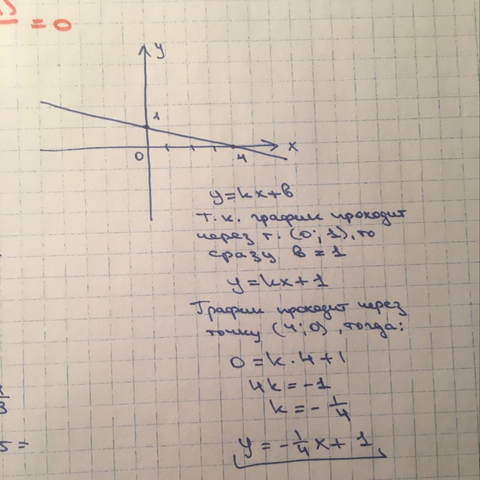 = 0
y
1
0
4
x
y=kx+b
Т.к. график проходит
через т. (0; 1), то
сразу b = 1
y=kx+1
График проходит через
точку (4;0), тогда:
0=k·4+1
4k=-1
k=-1/4
y=-1/4x+1
3
5=